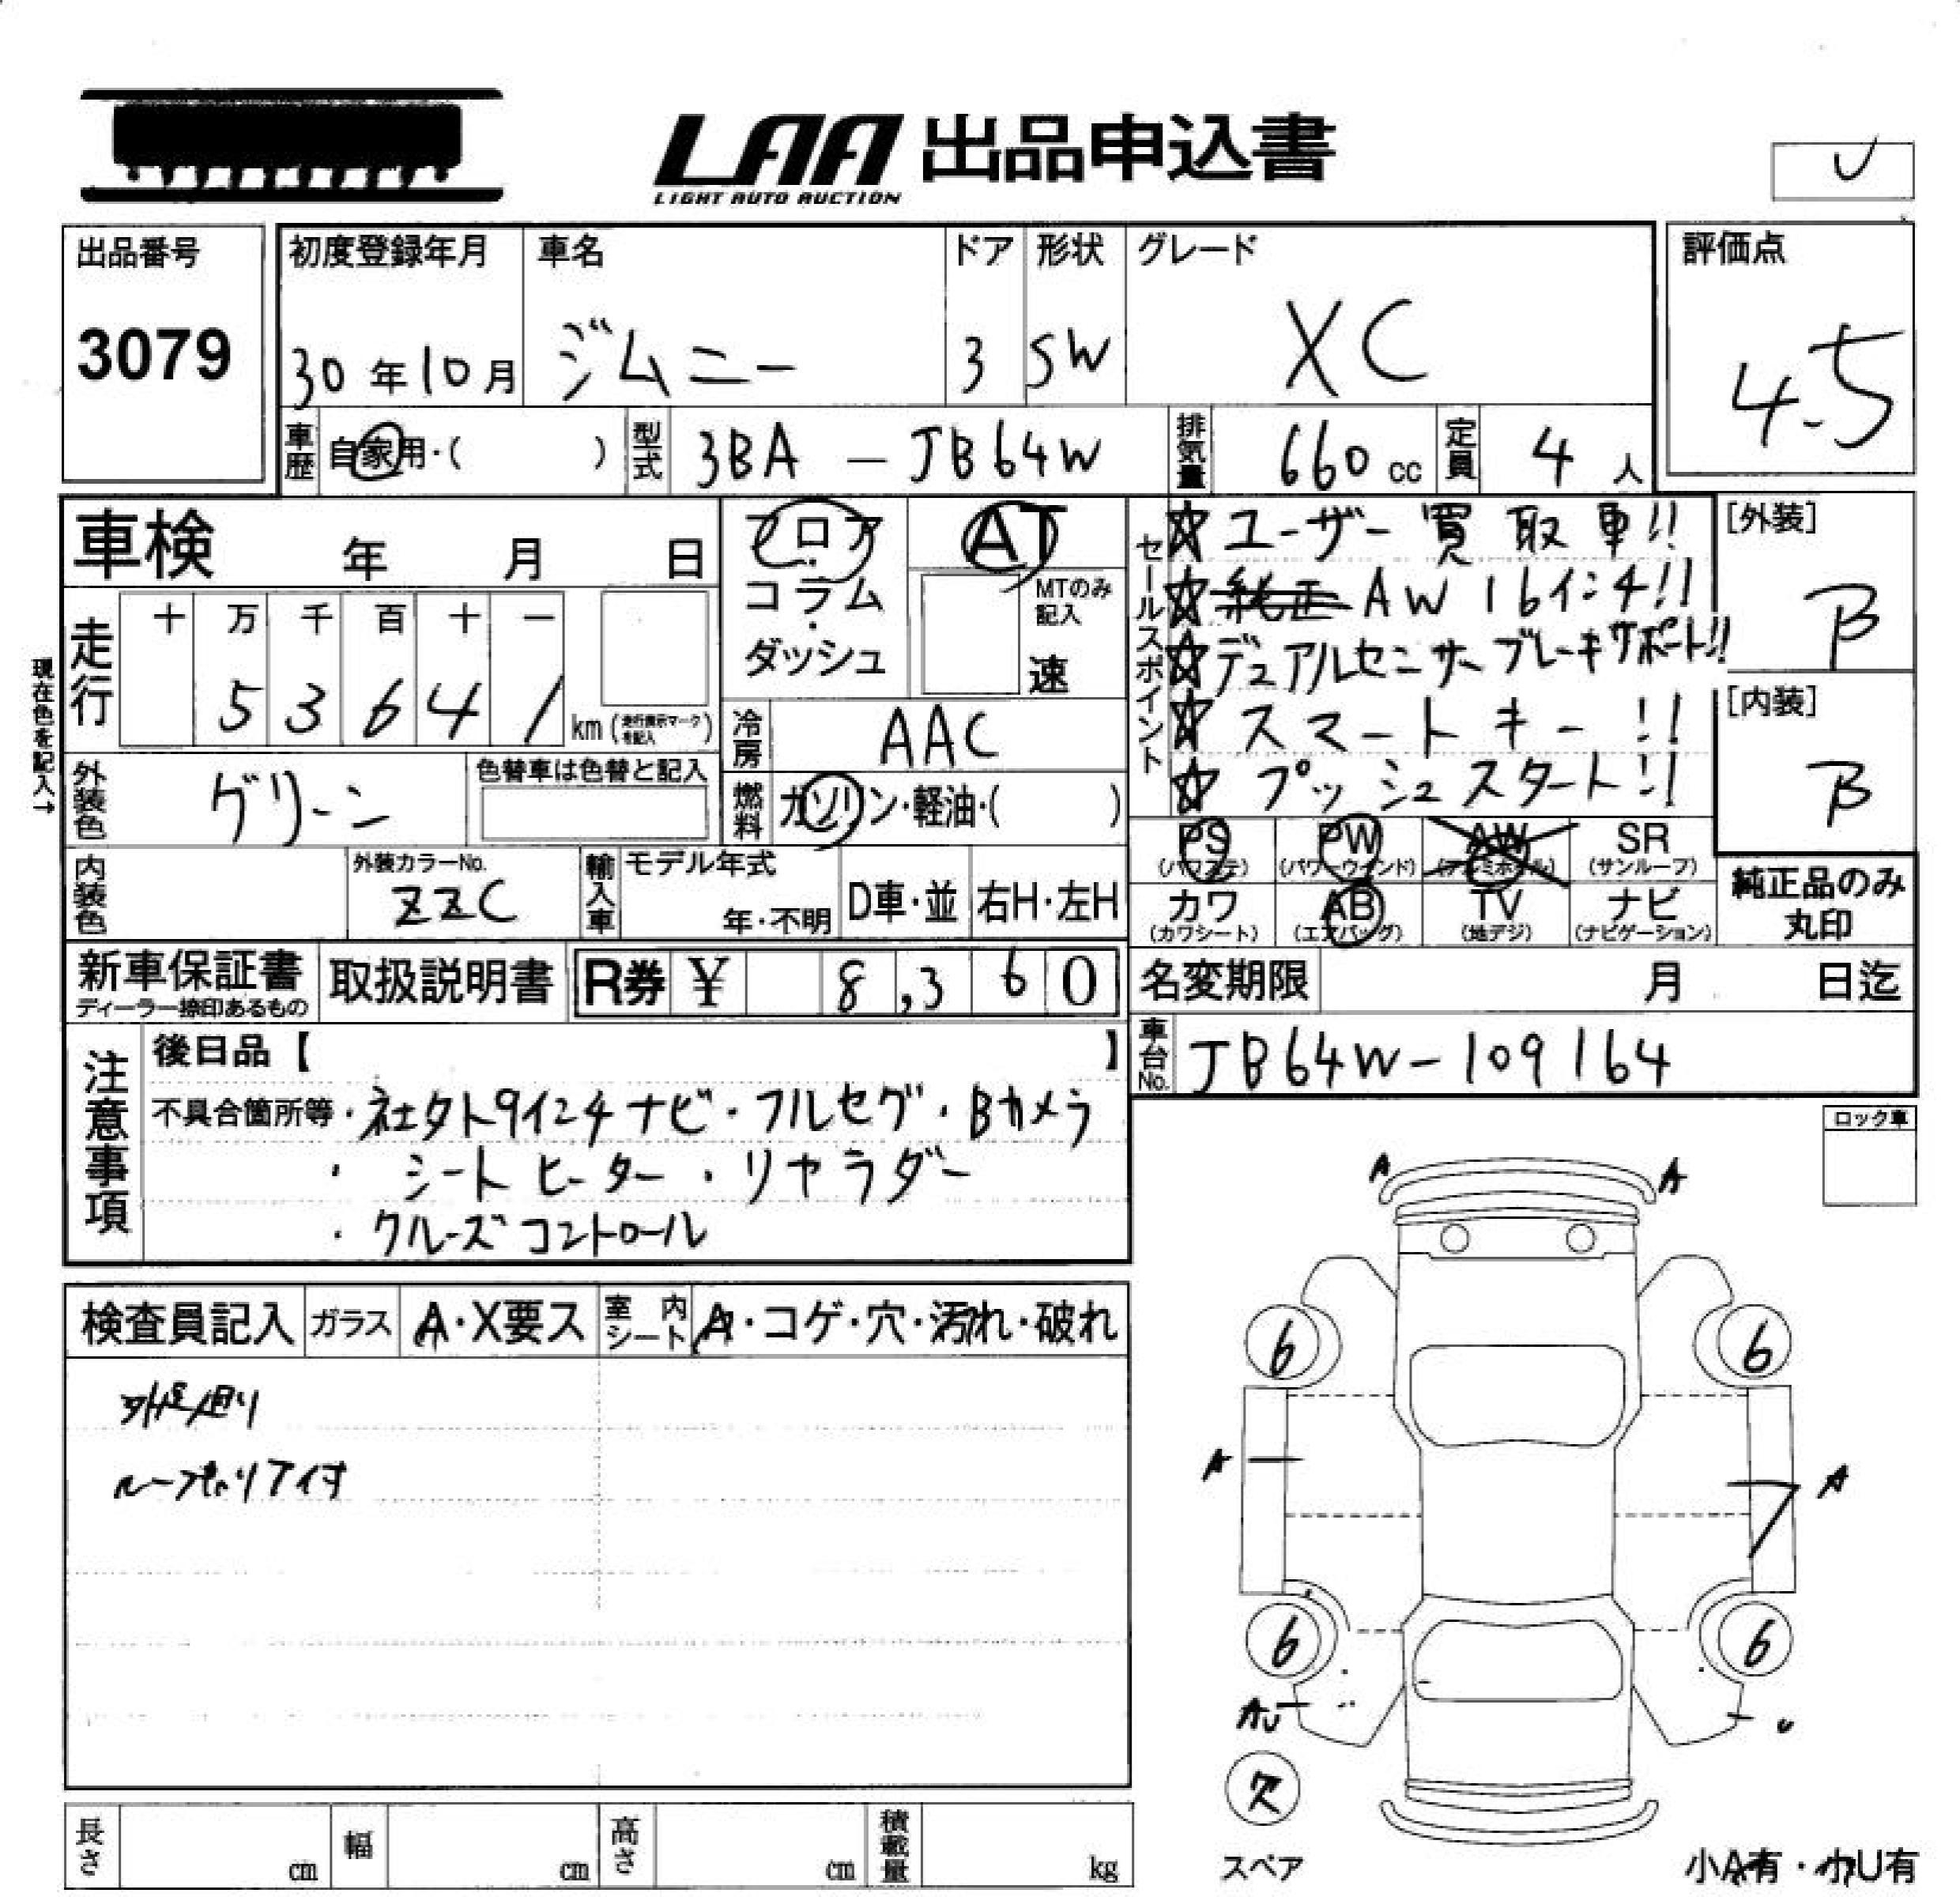 LAA 出品申込書
LIGHT AUTO AUCTION
U
出品番号
3079
初度登録年月
30年10月
車名
ジムニー
ドア
3
形状
SW
グレード
XC
評価点
4.5
車歴
自家用・( )
型式
3BA - JB64W
排気量
660 cc
定員
4 人
車検 年 月 日
フロア
・
コラム
・
ダッシュ
AT
MTのみ記入
速
セールスポイント
☆ユーザー買取車!!
☆純正AW16インチ!!
☆デュアルセンサーブレーキサポート!!
☆スマートキー!!
☆プッシュスタート!!
[外装]
B
[内装]
B
現在色を記入→
走行
十 万 千 百 十 一
5 3 6 4 1
km (走行表示マークを記入)
冷房
AAC
外装色
グリーン
色替車は色替と記入
燃料
ガソリン・軽油・( )
PS
(パワステ)
PW
(パワーウインド)
AW
(アルミホイル)
SR
(サンルーフ)
カワ
(カワシート)
AB
(エアバッグ)
TV
(地デジ)
ナビ
(ナビゲーション)
純正品のみ
丸印
内装色
外装カラーNo.
ZZC
輸入車
モデル年式
年・不明
D車・並
右H・左H
新車保証書
ディーラー捺印あるもの
取扱説明書
R券 ¥ 8,360
名変期限 月 日迄
車台No.
JB64W-109164
注意事項
後日品【 】
不具合箇所等・社外9インチナビ・フルセグ・Bカメラ
・シートヒーター・リヤラダー
・クルーズコントロール
ロック車
検査員記入
ガラス
A・X要ス
室内シート
A・コゲ・穴・汚れ・破れ
外足廻り
ルーフキャリア付
A A
6 6
A A
6 6
AU U
欠
スペア
小A有・小U有
長さ cm
幅 cm
高さ cm
積載量 kg